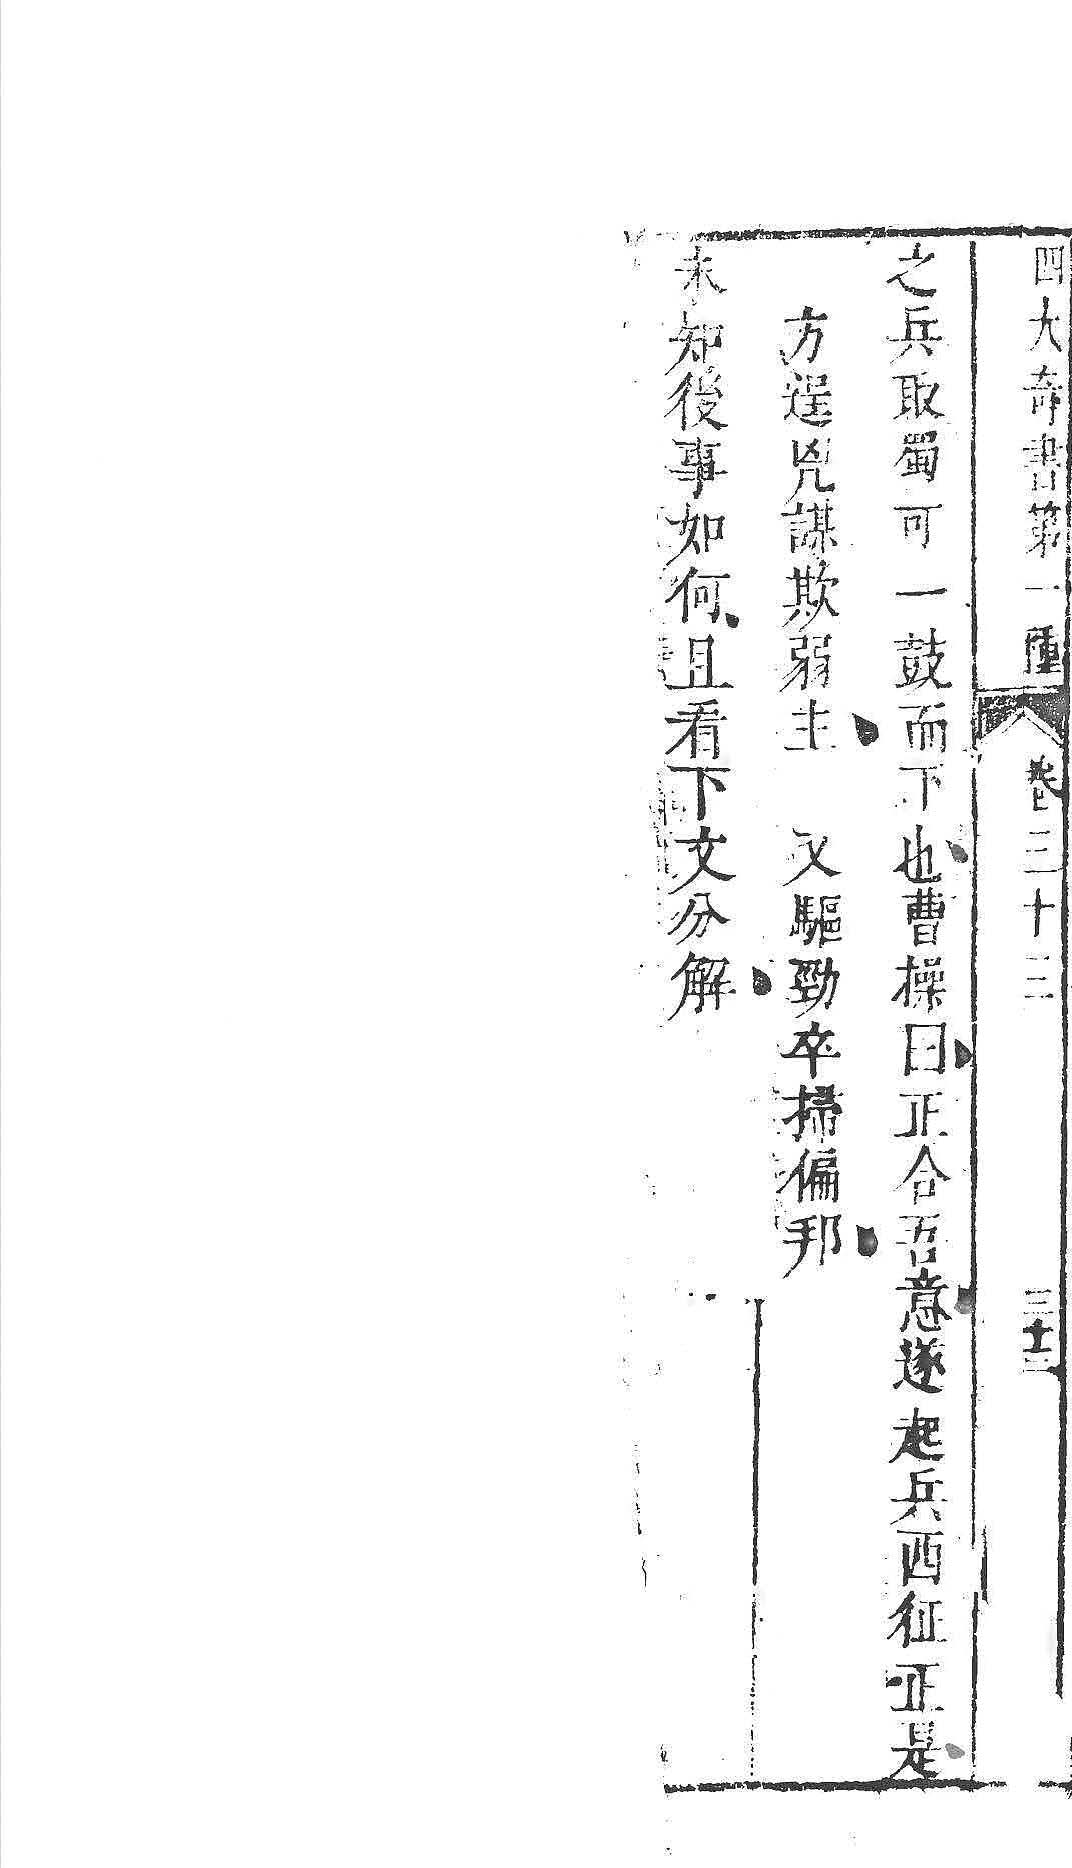 四大奇書第一種 卷三十三 三十二
之兵取蜀可一鼓而下也曹操曰正合吾意遂起兵西征正是
方逞兇謀欺弱主 又驅勁卒掃偏邦
未知後事如何且看下文分解